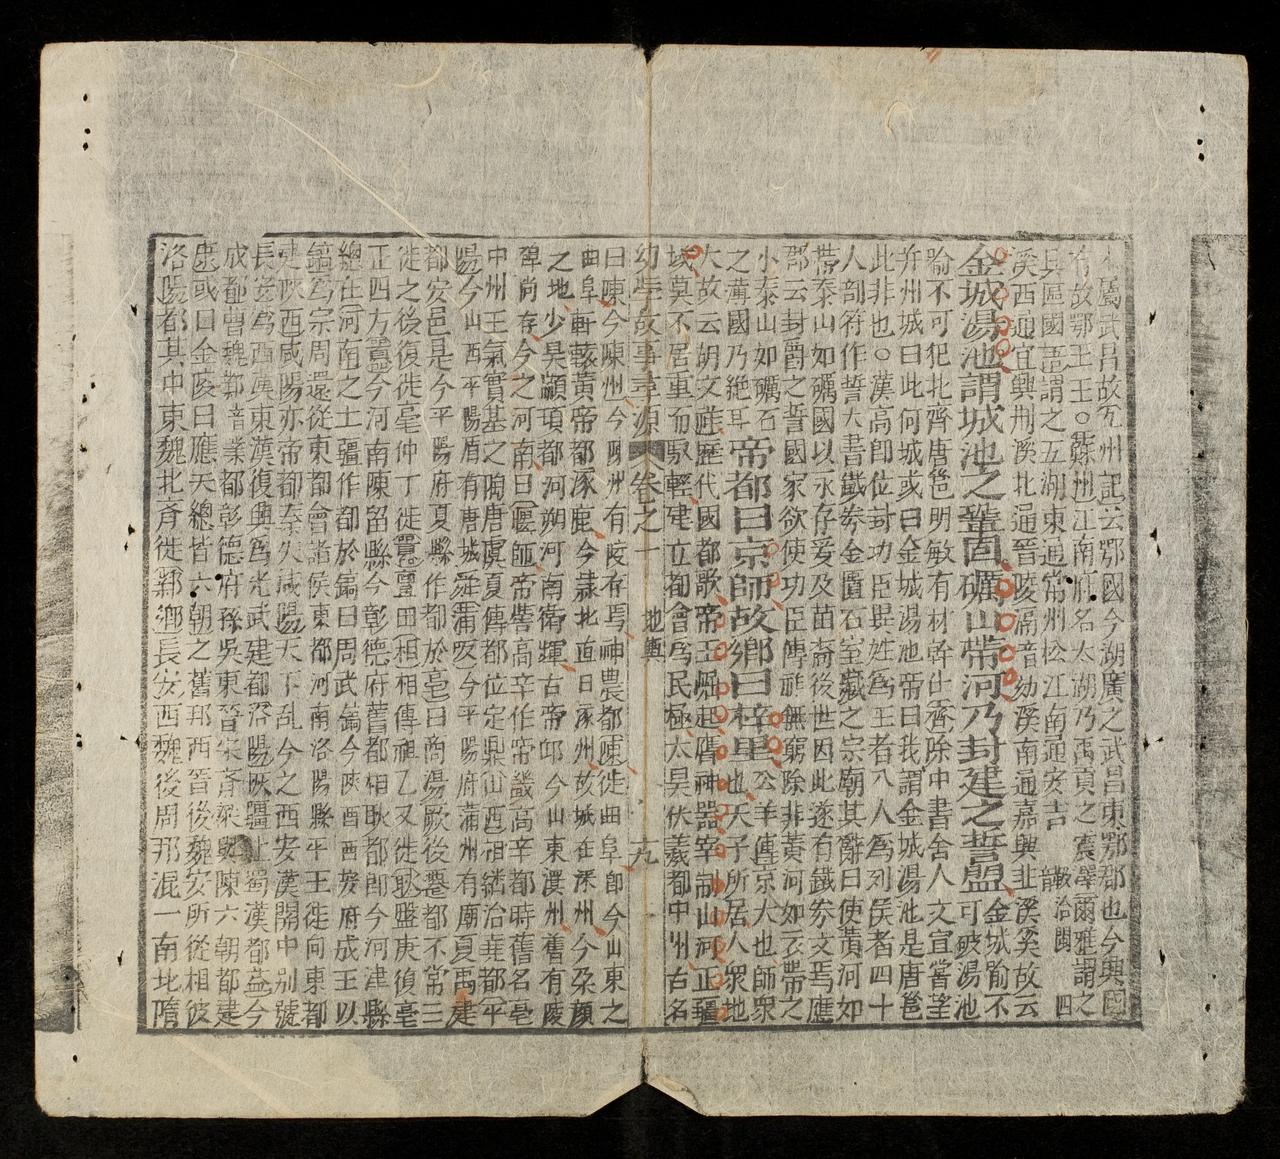 屬武昌故冗州記云鄂國今湖廣之武昌東鄂郡也今興國
有故鄂王王○蘇州江南府名太湖乃禹貢之震澤爾雅謂之
具區國語謂之五湖東通常州松江南通安吉
溪西通宜興荆溪北通晉陵滆音幼溪南通嘉興韭溪溪故云
金城湯池謂城池之鞏固礪山帶河乃封建之誓盟金城喻不
喻不可犯北齊唐邕明敏有材幹仕齊除中書舍人文宣嘗登
并州城曰此何城或曰金城湯池帝曰我謂金城湯池是唐邕
此非也○漢高即位封功臣異姓為王者八人為列侯者四十
人剖符作誓大書鐵券金匱石室藏之宗廟其辭曰使黃河如
帶泰山如礪國以永存爰及苗裔後世因此遂有鐵券文焉應
郡云封爵之誓國家欲使功臣傳祚無窮除非黃河如衣帶之
小泰山如礪石帝都曰京師故鄉曰梓里公羊傳京大也師眾
之溝國乃絕耳也天子所居人眾地
大故云胡文歷代國都歌帝王崛起膺神器宰制山河正疆
域莫不居重而馭輕建立都會為民極太昊伏羲都中州古名
幼學故事尋源 卷之一 地輿 十九
曰陳今陳州今陳州有陵存焉神農都陳徙曲阜即今山東之
曲阜軒轅黃帝都涿鹿今隷北直曰涿州故城在涿州今朶顏
之地少昊顓頊都河朔河南衛輝古帝邱今山東濮州舊有陵
碑尚存今之河南曰偃師帝嚳高辛作帝畿高辛都時舊名亳
中州王氣實基之陶唐虞夏傳都位定鼎山西相繼治堯都平
陽今山西平陽盾有唐城舜蒲坂今平陽府蒲州有廟夏禹建
都安邑是今平陽府夏縣作都於亳曰商湯厥後遷都不常三
徙之後復徙亳仲丁徙囂盬田相相傳祖乙又徙耿盤庚後亳
正四方囂今河南陳留縣今彰德府舊都相耿都即今河津縣
總在河南之土疆作都於鎬曰周武鎬今陜西西安府成王以
鎬為宗周還從東都會諸侯東都河南洛陽縣平王徙向東都
走陜西咸陽亦帝都秦失咸陽天下亂今之西安漢關中別號
長安為西漢東漢復興為光武建都洛陽恢疆址蜀漢都益今
成都曹魏鄴音業都彰德府孫吳東晉宋齊梁與陳六朝都建
康或曰金陵曰應天總皆六朝之舊邦西晉後魏安所從相彼
洛陽都其中東魏北齊徙鄴鄉長安西魏後周邦混一南北隋